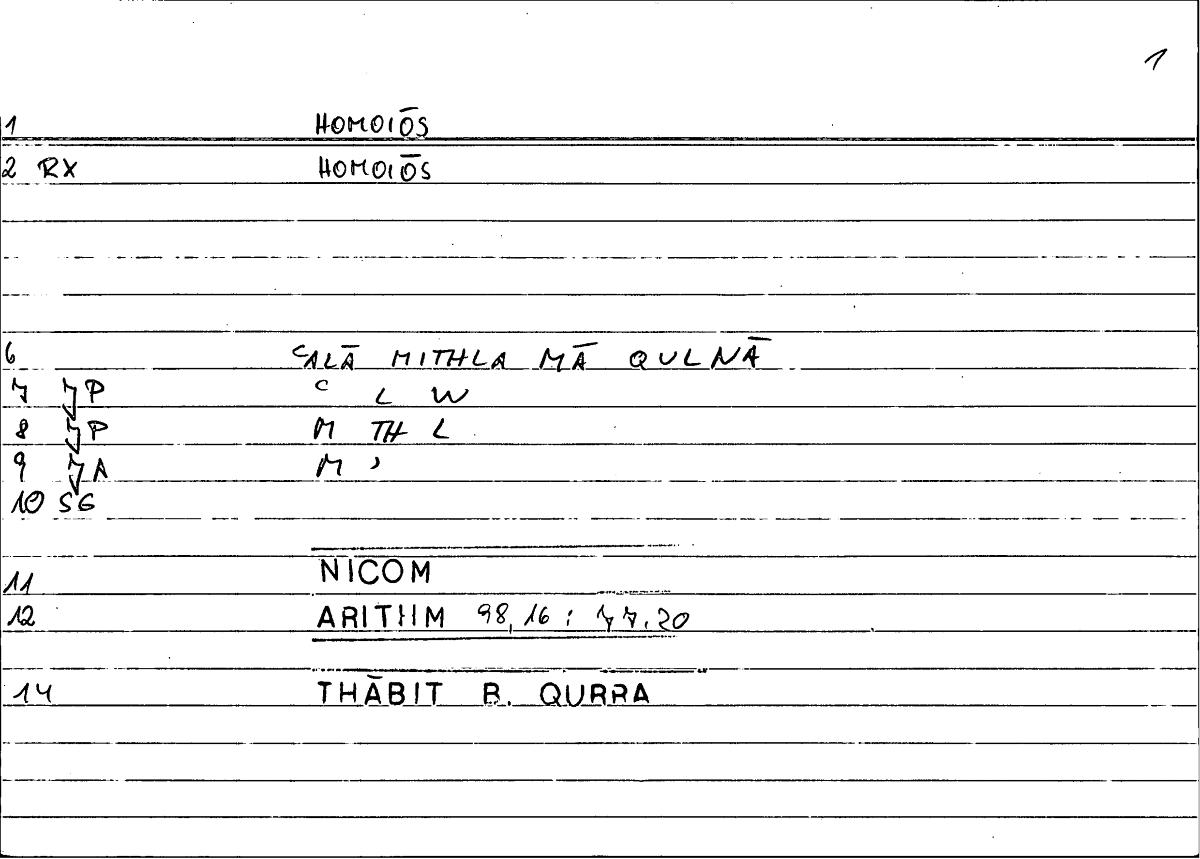 1
1 HOMOIŌS
2 RX HOMOIŌS
6 ʿALĀ MITHLA MĀ QULNĀ
7 JP ʿ L W
8 JP M TH L
9 JA M ʾ
10 SG
11 NICOM
12 ARITHM 98,16 : 77.20
14 THĀBIT B. QURRA